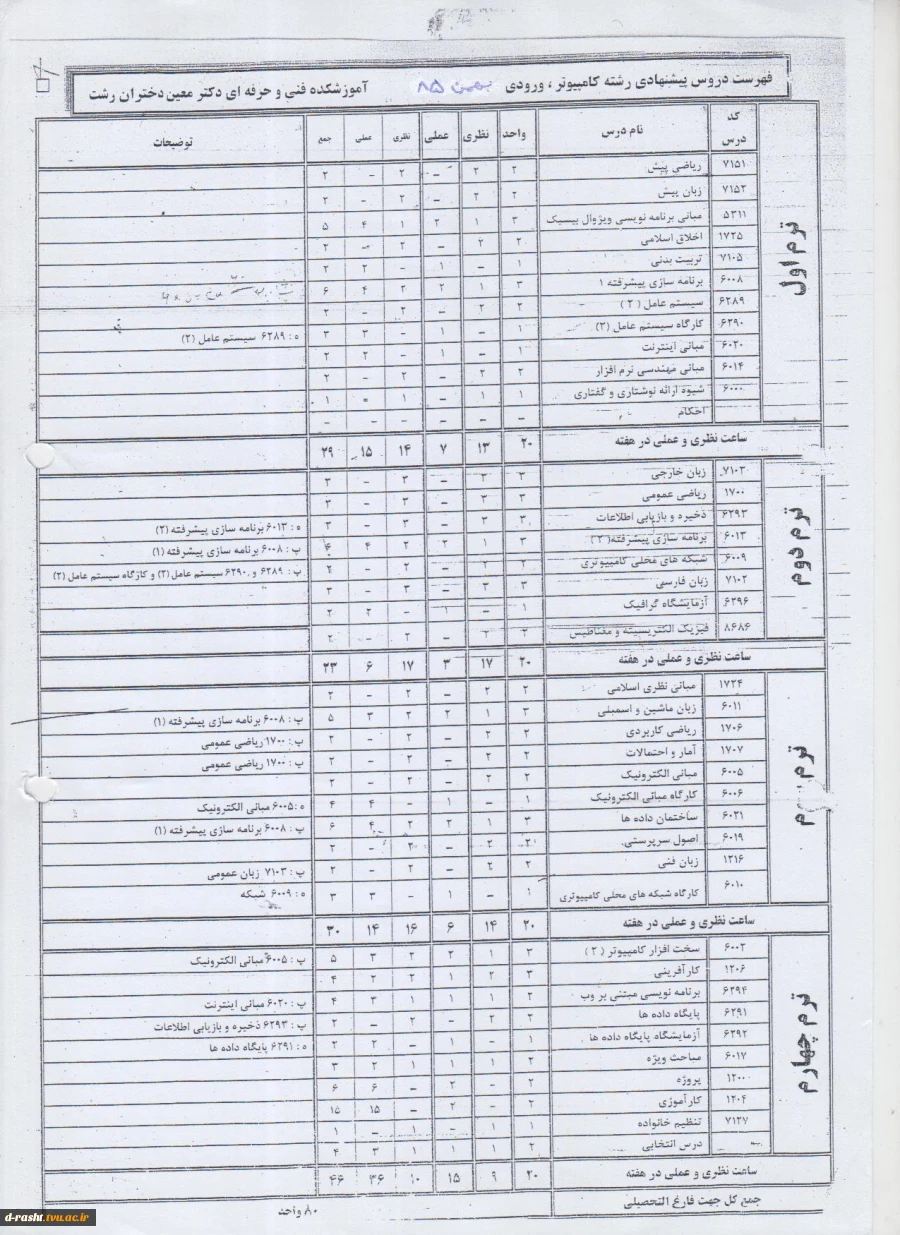 فهرست دروس پیشنهادی رشته کامپیوتر ، ورودی بهمن ۸۵ آموزشکده فنی و حرفه ای دکتر معین دختران رشت
کد درس نام درس واحد نظری عملی نظری عملی جمع توضیحات
ترم اول
۷۱۵۱ ریاضی پیش ۲ ۲ – ۲ – ۲
۷۱۵۲ زبان پیش ۲ ۲ – ۲ – ۲
۵۳۱۱ مبانی برنامه نویسی ویژوال بیسیک ۳ ۱ ۲ ۱ ۴ ۵
۱۷۲۵ اخلاق اسلامی ۲ ۲ – ۲ – ۲
۷۱۰۵ تربیت بدنی ۱ – ۱ – ۲ ۲
۶۰۰۸ برنامه سازی پیشرفته ۱ ۳ ۱ ۲ ۲ ۴ ۶
۶۲۸۹ سیستم عامل (۲) ۲ ۲ – ۲ – ۲
۶۲۹۰ کارگاه سیستم عامل (۲) ۱ – ۱ – ۳ ۳ ه : ۶۲۸۹ سیستم عامل (۲)
۶۰۲۰ مبانی اینترنت ۱ – ۱ – ۲ ۲
۶۰۱۴ مبانی مهندسی نرم افزار ۲ ۲ – ۲ – ۲
۶۰۰۰ شیوه ارائه نوشتاری و گفتاری ۱ ۱ – ۱ – ۱
احکام – – – – – –
ساعت نظری و عملی در هفته ۲۰ ۱۳ ۷ ۱۴ ۱۵ ۲۹
ترم دوم
۷۱۰۳ زبان خارجی ۳ ۳ – ۳ – ۳
۱۷۰۰ ریاضی عمومی ۳ ۳ – ۳ – ۳
۶۲۹۳ ذخیره و بازیابی اطلاعات ۳ ۳ – ۳ – ۳ ه : ۶۰۱۳ برنامه سازی پیشرفته (۲)
۶۰۱۳ برنامه سازی پیشرفته (۲) ۳ ۱ ۲ ۲ ۴ ۶ پ : ۶۰۰۸ برنامه سازی پیشرفته (۱)
۶۰۰۹ شبکه های محلی کامپیوتری ۲ ۲ – ۲ – ۲ پ : ۶۲۸۹ و ۶۲۹۰ سیستم عامل (۲) و کارگاه سیستم عامل (۲)
۷۱۰۲ زبان فارسی ۳ ۳ – ۳ – ۳
۶۲۹۶ آزمایشگاه گرافیک ۱ – ۱ – ۲ ۲
۸۶۸۶ فیزیک الکتریسیته و مغناطیس ۲ ۲ – ۲ – ۲
ساعت نظری و عملی در هفته ۲۰ ۱۷ ۳ ۱۷ ۶ ۲۳
ترم
۱۷۲۴ مبانی نظری اسلامی ۲ ۲ – ۲ – ۲
۶۰۱۱ زبان ماشین و اسمبلی ۳ ۱ ۲ ۲ ۳ ۵ پ : ۶۰۰۸ برنامه سازی پیشرفته (۱)
۱۷۰۶ ریاضی کاربردی ۲ ۲ – ۲ – ۲ پ : ۱۷۰۰ ریاضی عمومی
۱۷۰۷ آمار و احتمالات ۲ ۲ – ۲ – ۲ پ : ۱۷۰۰ ریاضی عمومی
۶۰۰۵ مبانی الکترونیک ۲ ۲ – ۲ – ۲
۶۰۰۶ کارگاه مبانی الکترونیک ۱ – ۱ – ۴ ۴ ه : ۶۰۰۵ مبانی الکترونیک
۶۰۲۱ ساختمان داده ها ۳ ۱ ۲ ۲ ۴ ۶ پ : ۶۰۰۸ برنامه سازی پیشرفته (۱)
۶۰۱۹ اصول سرپرستی ۲ ۲ – ۲ – ۲
۱۲۱۶ زبان فنی ۲ ۲ – ۲ – ۲ پ : ۷۱۰۳ زبان عمومی
۶۰۱۰ کارگاه شبکه های محلی کامپیوتری ۱ – ۱ – ۳ ۳ ه : ۶۰۰۹ شبکه
ساعت نظری و عملی در هفته ۲۰ ۱۴ ۶ ۱۶ ۱۴ ۳۰
ترم چهارم
۶۰۰۲ سخت افزار کامپیوتر (۲) ۳ ۱ ۲ ۲ ۳ ۵ پ : ۶۰۰۵ مبانی الکترونیک
۱۲۰۶ کارآفرینی ۳ ۲ ۱ ۲ ۲ ۴
۶۲۹۴ برنامه نویسی مبتنی بر وب ۲ ۱ ۱ ۱ ۳ ۴ پ : ۶۰۲۰ مبانی اینترنت
۶۲۹۱ پایگاه داده ها ۲ ۲ – ۲ – ۲ پ : ۶۲۹۳ ذخیره و بازیابی اطلاعات
۶۲۹۲ آزمایشگاه پایگاه داده ها ۱ – ۱ – ۲ ۲ ه : ۶۲۹۱ پایگاه داده ها
۶۰۱۷ مباحث ویژه ۲ ۱ ۱ ۱ ۲ ۳
۱۲۰۰ پروژه ۲ – ۲ – ۶ ۶
۱۲۰۴ کارآموزی ۲ – ۲ – ۱۵ ۱۵
۷۱۲۷ تنظیم خانواده ۱ ۱ – ۱ – ۱
– درس انتخابی ۲ ۱ ۱ ۱ ۳ ۴
ساعت نظری و عملی در هفته ۲۰ ۹ ۱۵ ۱۰ ۳۶ ۴۶
جمع کل جهت فارغ التحصیلی ۸۰ واحد
d-rasht.tvu.ac.ir